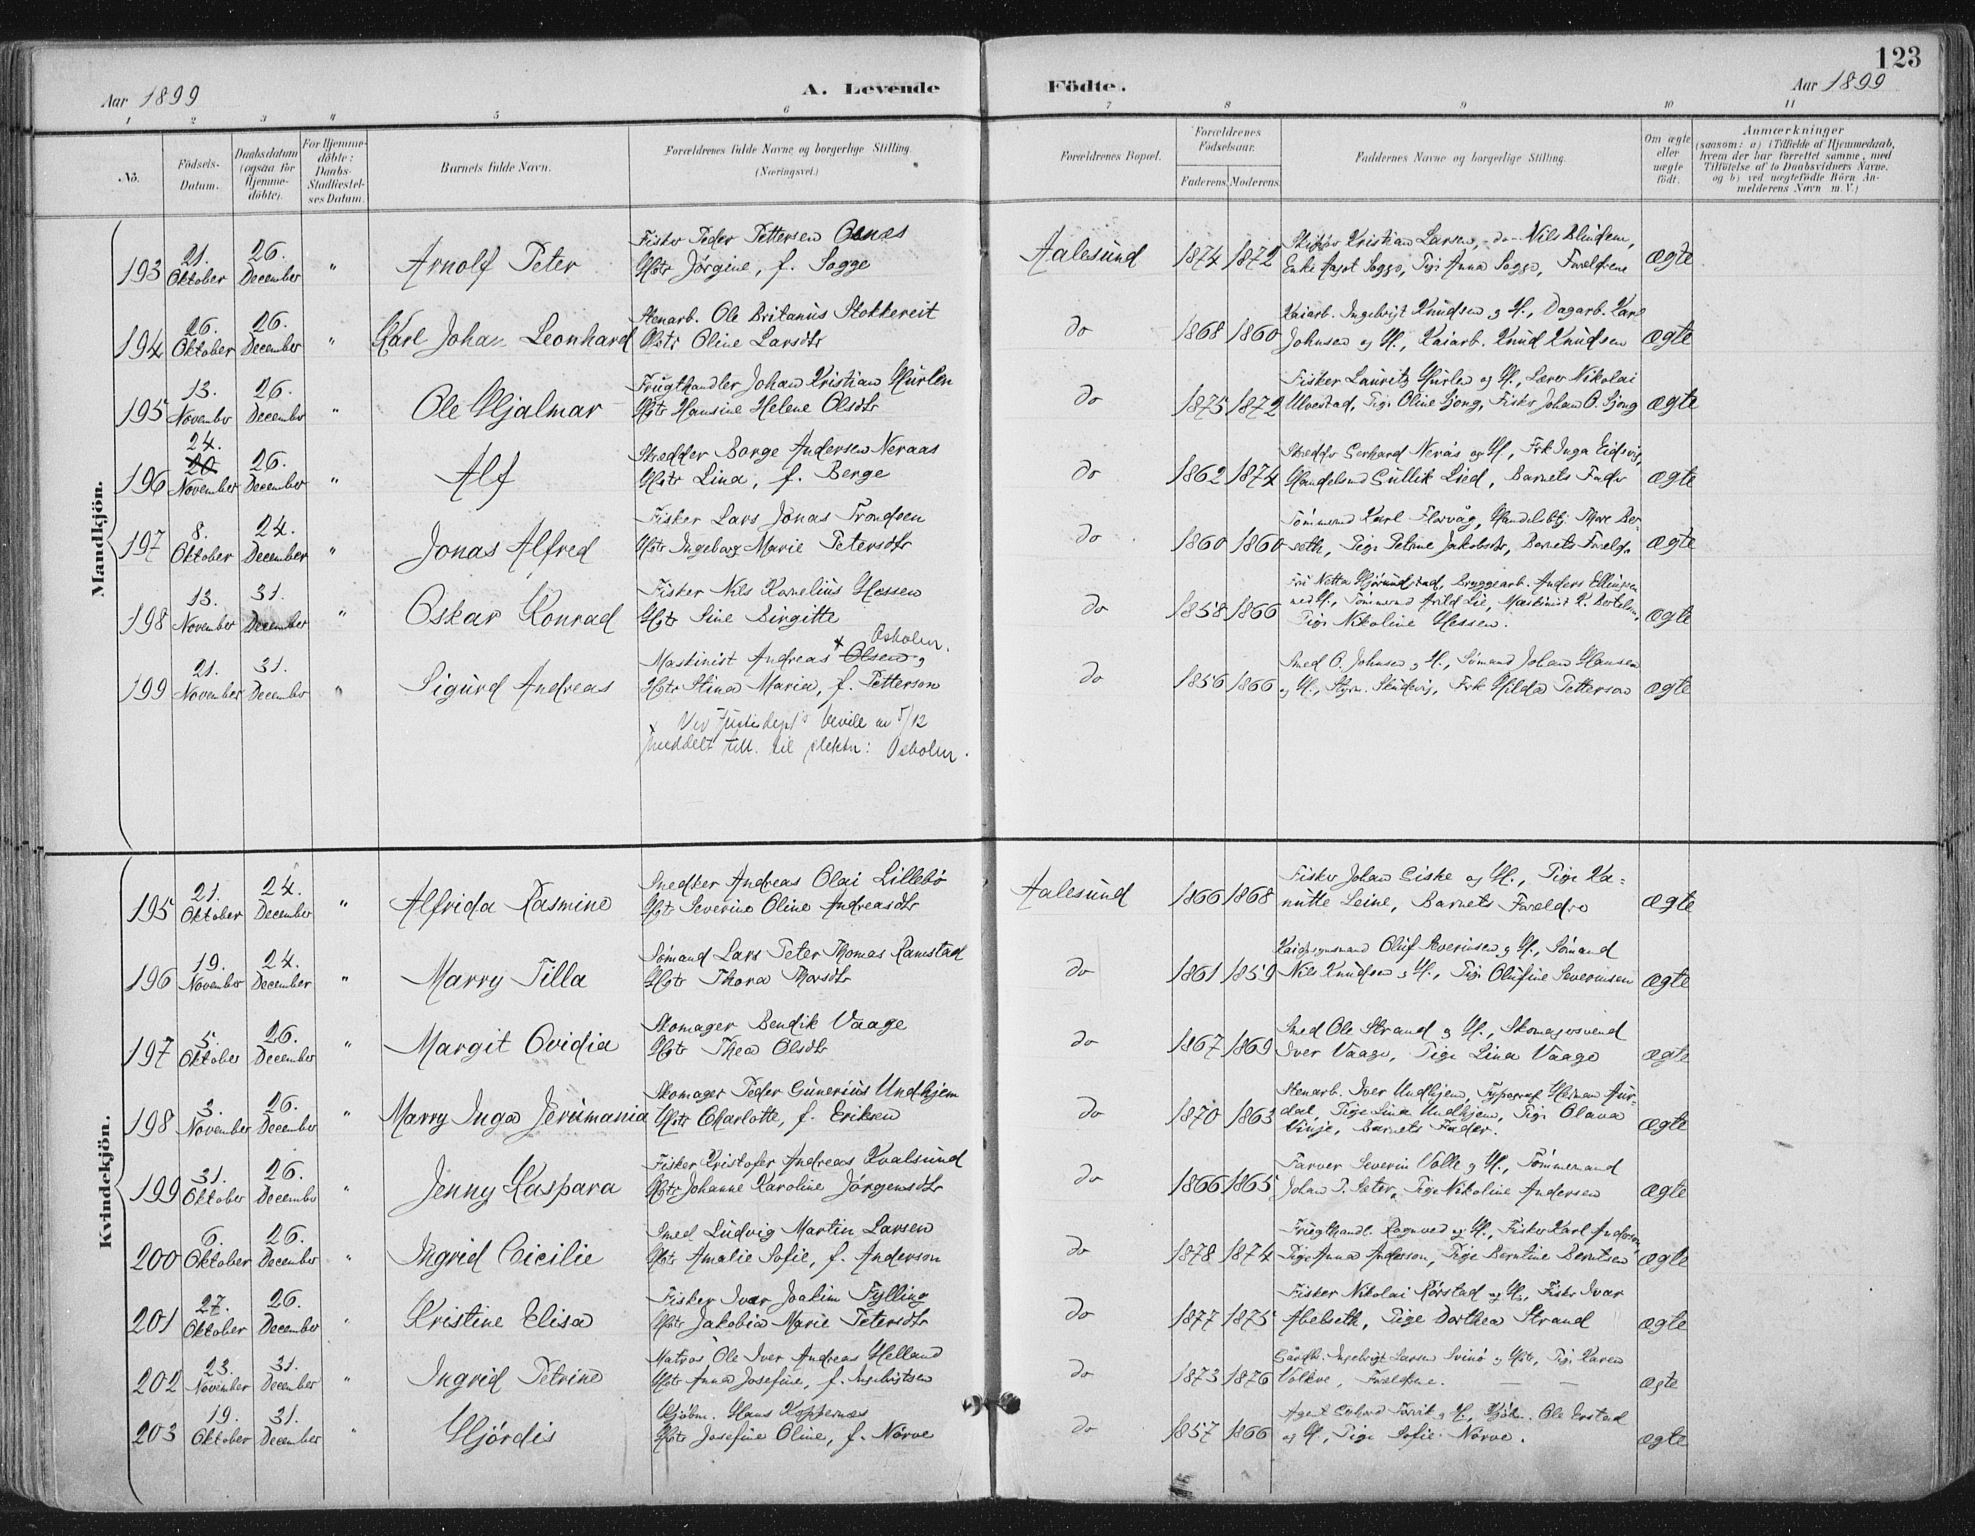 123
Aar 1899 A. Levende Födte. Aar 1899
1 2 3 4 5 6 7 8 9 10 11
No. Födsels-Datum. Daabsdatum (ogsaa for Hjemme-döbte). For Hjemme-döbte: Daabs-Stadfæstel-ses Datum. Barnets fulde Navn. Forældrenes fulde Navne og borgerlige Stilling. (Næringsvei.) Forældrenes Bopæl. Forældrenes Födselsaar. Faderens. Moderens. Faddernes Navne og borgerlige Stilling. Om ægte eller uægte födt. Anmærkninger (saasom: a) i Tilfælde af Hjemmedaab, hvem der har forrettet samme, med Tilföielse af to Daabsvidners Navne. og b) ved uægtefödte Börn Anmelderens Navn m. V.)
Mandkjön.
21. 26. Fisker Peder Pettersen Skipper Kristian Larsen, do Nils Blindem,
193 Oktober December " Arnolf Peter Hstr Jørgine, f. Sogge Aalesund 1874 1872 Enke Sogge, Pige Anna Sogge, Forældrene ægte
26. 26. Stenarb. Ole Britanus Stokkereit Kaiarb. Ingebrigt Knudsen og H., Dagarb. Karl
194 Oktober December " Karl Johan Leonhard Hstr Oline Larsdtr do 1868 1860 Johnsen og H., Kaiarb. Knud Knudsen ægte
13. 26. Frugthandler Johan Kristian Hurlen Fisker Lauritz Hurlen og H., Lærer Nikolai
195 November December " Ole Hjalmar Hstr Hansine Helene Olsdtr do 1875 1872 Ulvestad, Pige Oline Gjong, Fisker Johan O. Gjong ægte
24.
20. 26. Skredder Borge Andersen Neraas Skredder Gerhard Nerås og H., Frk Inga Eidsvig,
196 November December " Alf Hstr Lina, f. Berge do 1862 1874 Handelsmd Gullik Lied, Barnets Fader ægte
8. 24. Fisker Lars Jonas Trondsen Tømmermd Karl Florvåg, Handelsbtj. Thore Ber-
197 Oktober December " Jonas Alfred Hstr Ingeborg Marie Petersdtr do 1860 1860 seth, Pige Petrine Jakobsdtr, Barnets Foreldr. ægte
13. 31. Fisker Nils Kornelius Hessen Fru Netta Hjørundstad, Bryggearb. Anders Ellingsen
198 November December " Oskar Konrad Hstr Sine Birgitte do 1858 1866 med H., Tømmermd Arild Lie, Maskinist K. Bertelsen, ægte
Pige Nikoline Hessen.
Osholm.
21. 31. Maskinist Andreas x Olsen og Smed O. Johnsen og H., Sømand Johan Hansen
199 November December " Sigurd Andreas Hstr Stina Maria, f. Petterson do 1856 1866 og H., Frk Hilda Petterson ægte
x Ved Justisdept's bevill. av 5/12
meddelt till. til slektn: Osholm.
Kvindekjön.
21. 24. Snedker Andreas Olai Lillebø Fisker Johan Giske og H., Pige Ka-
195 Oktober December " Alfrida Rasmine Hstr Severine Oline Andreasdtr Aalesund 1866 1868 nutte Leine, Barnets Forældre ægte
19. 24. Sømand Lars Peter Thomas Ramstad Oluf Severinsen og H., Sømand
196 November December " Marry Tilla Hstr Thora Thorsdtr do 1861 1859 Nils Knudsen og H., Pige Olufine Severinsen ægte
5. 26. Skomager Bendik Vaage Smed Ole Strand og H., Skomagersvend
197 Oktober December " Margit Ovidia Hstr Thea Olsdtr do 1867 1869 Iver Vaage, Pige Lina Vaage ægte
3. 26. Skomager Peder Gunerius Undhjem Stenarb. Iver Undhjem, Typograf Herman Aur-
198 November December " Marry Inga Jerumania Hstr Charlotte, f. Eriksen do 1870 1863 dal, Pige Lina Undhjem, Pige Olava ægte
Vinje, Barnets Fader.
31. 26. Fisker Kristofer Andreas Kvalsund Farver Severin Volle og H., Tømmermand
199 Oktober December " Jenny Kaspara Hstr Johanne Karoline Jørgensdtr do 1866 1865 Johan P. Sæter, Pige Nikoline Andersen ægte
6. 26. Smed Ludvig Martin Larsen Frugthandl. Ragnved og H., Fisker Karl Anderson,
200 Oktober December " Ingrid Cicilie Hstr Amalie Sofie, f. Anderson do 1878 1874 Pige Anna Anderson, Pige Berntine Berntsen ægte
27. 26. Fisker Ivar Joakim Fylling Fisker Nikolai Rørstad og H., Fisker Ivar
201 Oktober December " Kristine Elisa Hstr Jakobia Marie Petersdtr do 1877 1875 Abelseth, Pige Dorthea Strand ægte
23. 31. Matros Ole Iver Andreas Helland Gårdbr. Ingebrigt Larsen Svinø og Hstr, Pige Karen
202 November December " Ingrid Petrine Hstr Anna Josefine, f. Ingebrigtsen do 1873 1876 Forældrene. ægte
19. 31. Kjøbm. Hans Koppernæs Agent og H., Kjøbm. Ole Erstad
203 Oktober December " Hjørdis Hstr Josefine Oline, f. Nørve do 1857 1866 og H., Pige Sofie Nørve. ægte